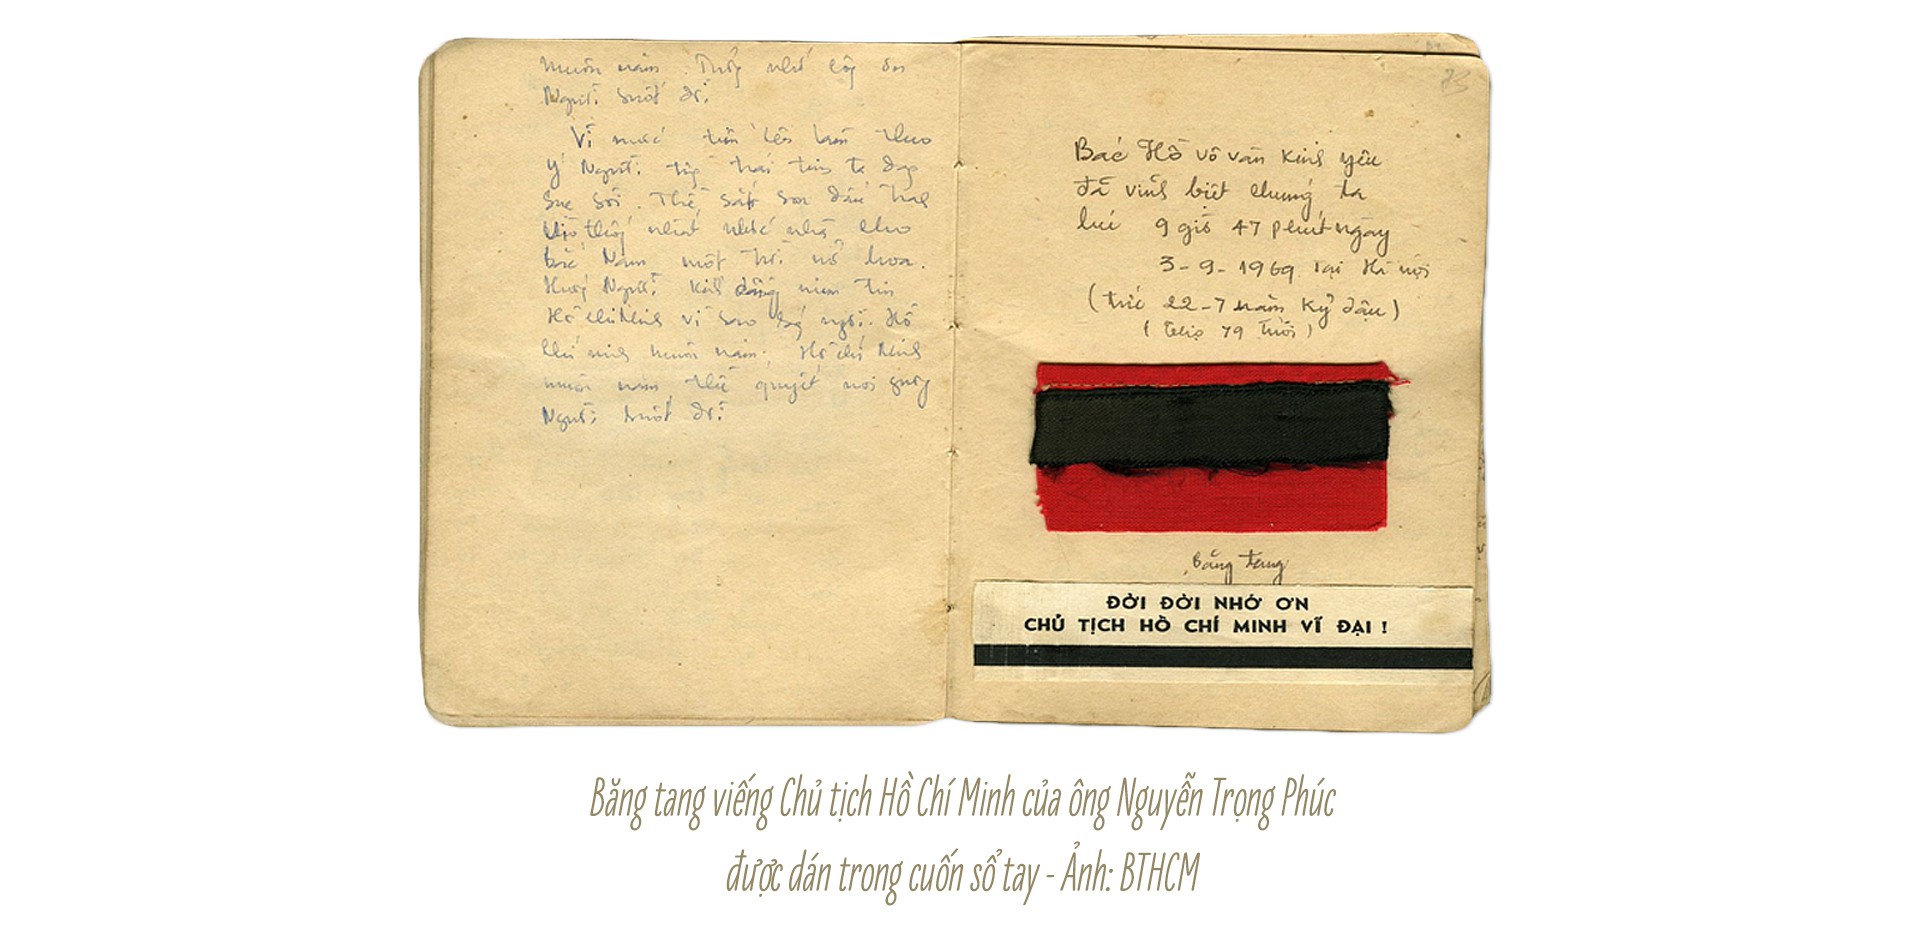 muôn năm. Thủy nhớ công ơn
Người suốt đời
Vì nước tiến lên làm theo
ý Người. từng trái tim ta đang
sục sôi. Thề sắt son đấu tranh
thống nhất nước nhà cho
Bắc Nam một trời nở hoa.
Hướng Người. Kính dâng niềm tin
Hồ Chí Minh vì sao sáng ngời. Hồ
Chí Minh muôn năm. Hồ Chí Minh
muôn năm thề quyết noi gương
Người suốt đời
Bác Hồ vô vàn kính yêu
đã vĩnh biệt chúng ta
lúc 9 giờ 47 phút ngày
3-9-1969 Tại Hà nội
(tức 22-7 năm Kỷ dậu)
(thọ 79 tuổi)
Băng tang
ĐỜI ĐỜI NHỚ ƠN
CHỦ TỊCH HỒ CHÍ MINH VĨ ĐẠI !
Băng tang viếng Chủ tịch Hồ Chí Minh của ông Nguyễn Trọng Phúc
được dán trong cuốn sổ tay - Ảnh: BTHCM